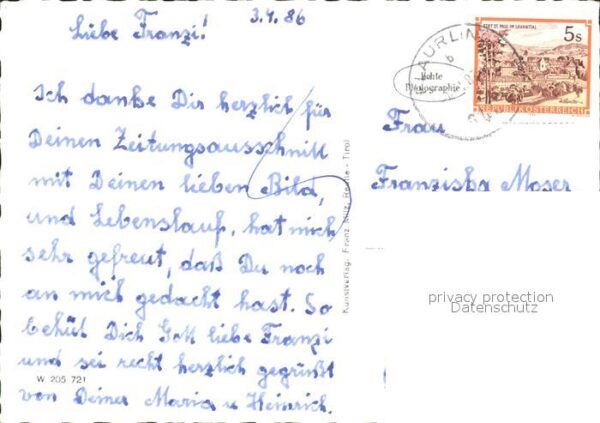 3.4.86
Liebe Franzi!
Ich danke Dir herzlich für
Deinen Zeitungsausschnitt
mit Deinen lieben Bild,
und Lebenslauf, hat mich
sehr gefreut, daß Du noch
an mich gedacht hast. So
behüt Dich Gott liebe Franzi
und sei recht herzlich gegrüßt
von Deiner Maria u Heinrich.
W 205 721
Kunstverlag Franz Milz, Reutte - Tirol
Echte
Photographie
STIFT ST. PAUL IM LAVANTTAL
5s
REPUBLIK ÖSTERREICH
Frau
Franziska Moser
privacy protection
Datenschutz